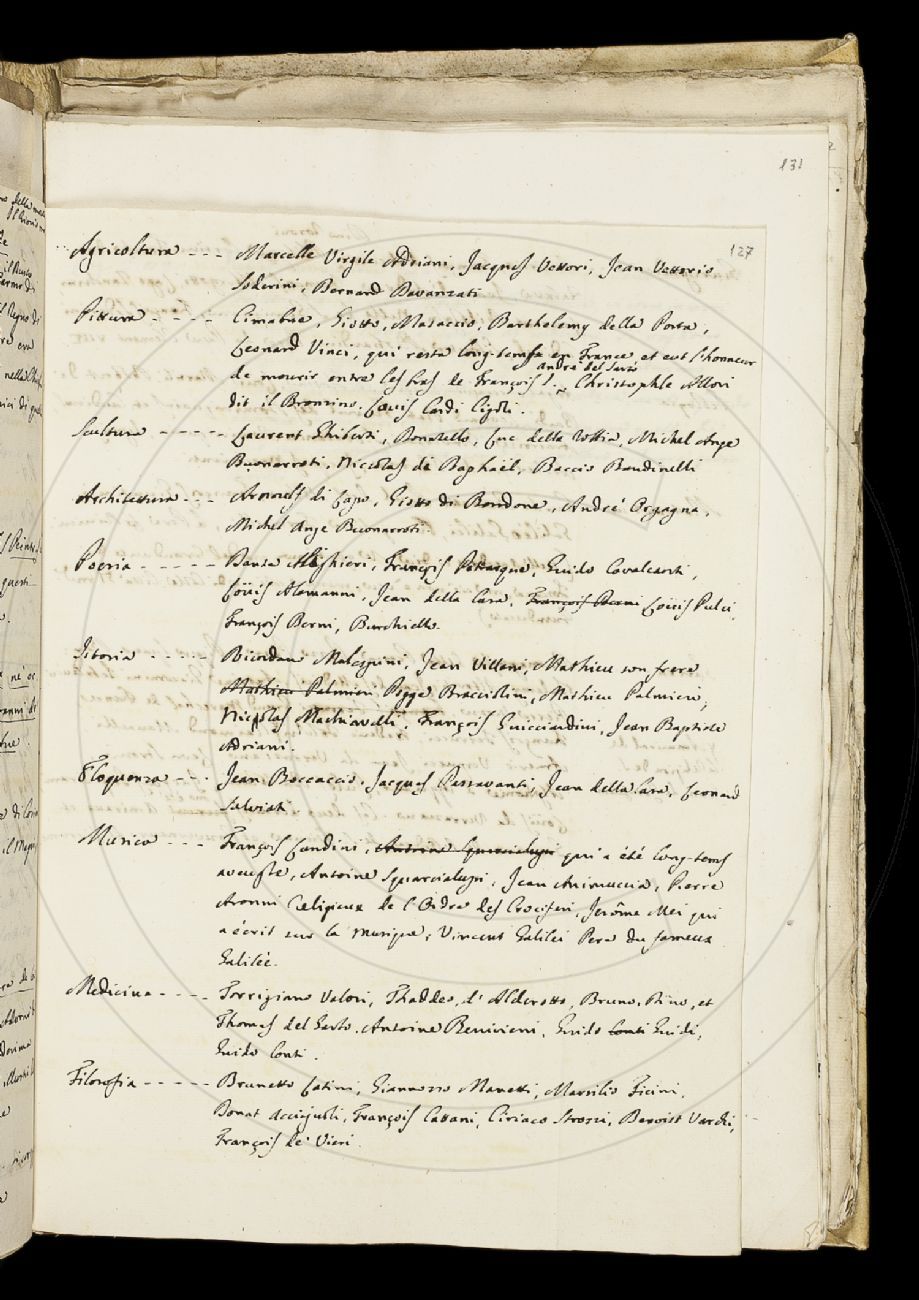 131
127
Agricoltura --- Marcelle Virgile Adriani, Jacques Vettori, Jean Vettorio
Soderini, Bernard Davanzati
Pittura ----- Cimabue, Giotto, Masaccio, Barthelemy della Porta,
Leonard Vinci, qui resta long-temps en France et eut l'honneur
André del Sarto
de mourir entre les bras de François I. Christophle Allori
dit il Bronzino. Louis Cardi Cigoli.
Scultura ----- Laurent Ghiberti, Donatello, Luc della Robbia, Michel Ange
Buonarroti, Niccolas de Raphaël, Baccio Bandinelli
Architettura --- Arnoulf di Lapo, Giotto di Bondone, André Orgagna,
Michel Ange Buonarroti.
Poesia ----- Dante Alighieri, François Petrarque, Guido Cavalcanti,
Loüis Alamanni, Jean della Casa, François Berni Loüis Pulci,
François Berni, Burchiello.
Istoria ----- Ricordan Malespini, Jean Villani, Mathieu son frere
Mathieu Palmieri Pogge Bracciolini, Mathieu Palmieri,
Nicolas Machiavelli, François Guicciardini, Jean Baptiste
Adriani.
Eloquenza --- Jean Boccaccio, Jacques Passavanti, Jean della Casa, Leonard
Salviati
Musica --- François Landini, Antoine Squarcialupi qui a été long-tems
aveugle, Antoine Squarcialupi, Jean Animuccia, Pierre
Aronni Religieux de l'Ordre des Crociferi, Jerôme Mei qui
a écrit sur la musique, Vincent Galilei Pere du fameux
Galilée.
Medicina ---- Torrigiano Valori, Thaddeo d'Alderotto, Bruno, Dino, et
Thomas del Garbo, Antoine Benivieni, Guido Conti Guidi,
Guido Conti.
Filosofia ----- Brunetto Latini, Giannozzo Manetti, Marsilio Ficini,
Donat Acciajuoli, François Cattani, Ciriaco Strozzi, Benoist Varchi,
François de' Vieri.